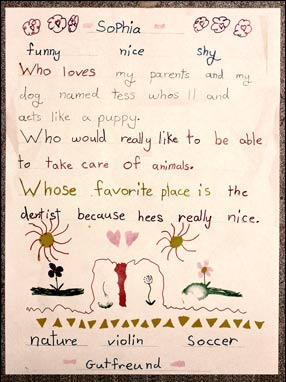 Sophia
funny nice shy
Who loves my parents and my
dog named tess whos 11 and
acts like a puppy.
Who would really like to be able
to take care of animals.
Whose favorite place is the
dentist because hees really nice.
nature violin Soccer
Gutfreund